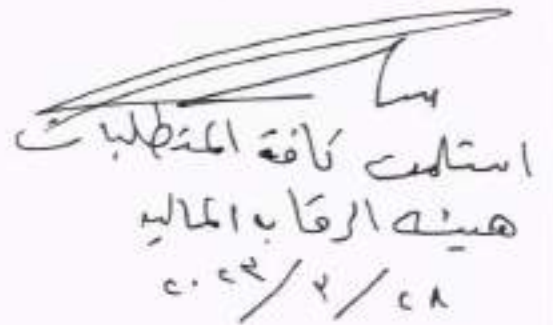 استلمت كافة المتطلبات
هيئه الرقابه الماليه
٢٠٢٣/٣/٢٨